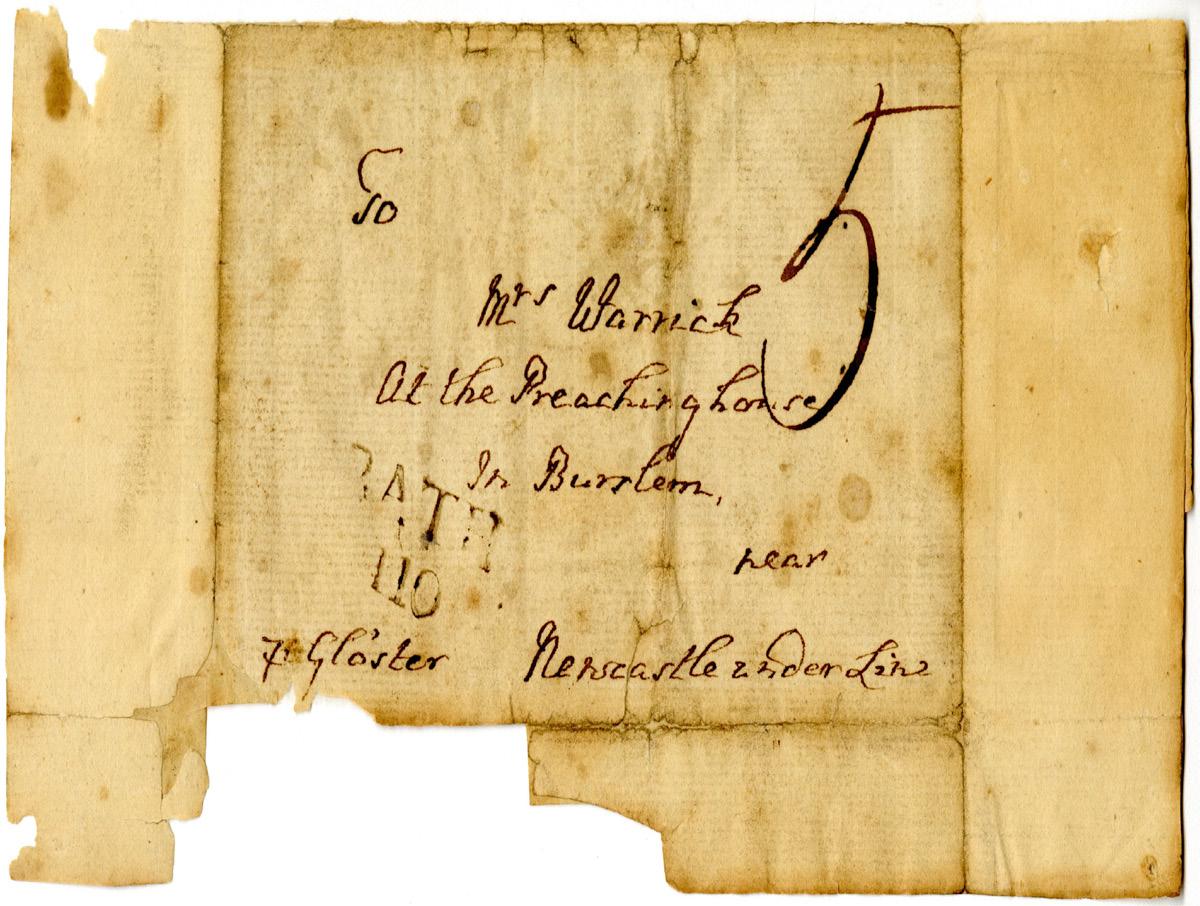 To
5
Mrs Warrick
At the Preachinghouse
In Burslem,
BATH
110
near
Newcastle under Line
Gloster